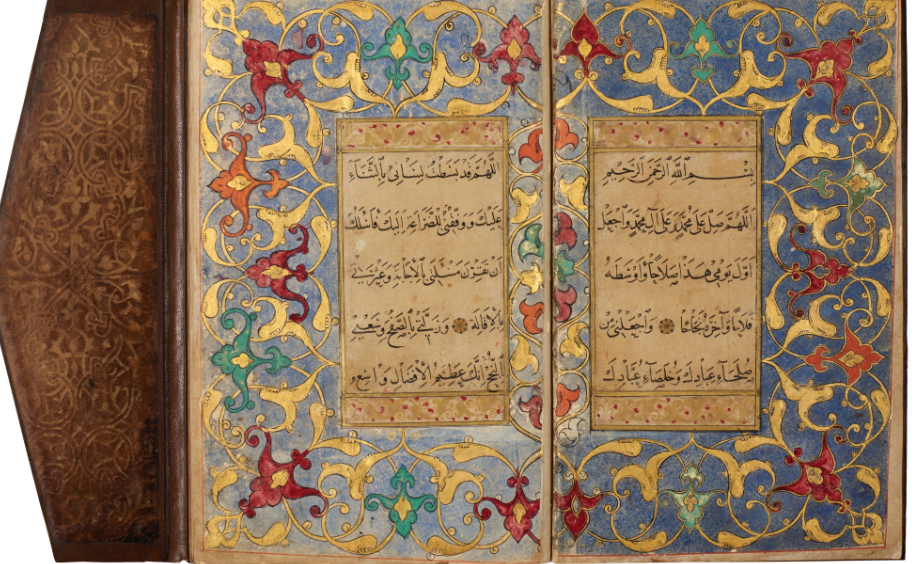 بِسْمِ اللَّهِ الرَّحْمَنِ الرَّحِيمِ
اللَّهُمَّ صَلِّ عَلَى مُحَمَّدٍ وَعَلَى آلِ مُحَمَّدٍ وَاجْعَلْ
أَوَّلَ يَوْمِي هَذَا صَلَاحًا وَأَوْسَطَهُ
فَلَاحًا وَآخِرَهُ نَجَاحًا وَاجْعَلْنِي مِنْ
صُلَحَاءِ عِبَادِكَ وَخُلَصَاءِ عُبَّادِكَ
اللَّهُمَّ قَدْ بَسَطْتُ لِسَانِي بِالثَّنَاءِ
عَلَيْكَ وَوَفِّقْنِي لِلضَّرَاعَةِ إِلَيْكَ فَاسْئَلُكَ
أَنْ تَقْرِنَ مَسْئَلَتِي بِالْإِجَابَةِ وَعَثْرَتِي
بِالْإِقَالَةِ وَزَلَّتِي بِالصَّفْحِ وَسَعْيِي
بِالنُّجْحِ إِنَّكَ عَظِيمُ الْإِفْضَالِ وَاسِعُ